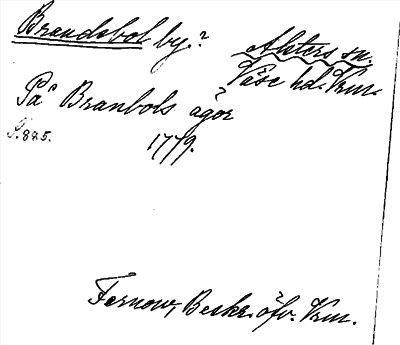 Brandsbol by.?
Alsters sn.
Väse hd. Vrm.
På Branbols ägor
S. 885. 1779.
Fernow, Beskr. öfv. Vrm.